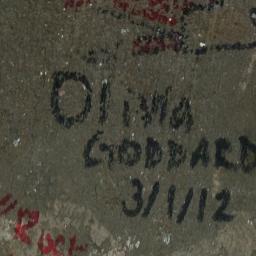 Olivia
GODDARD
3/1/12
Rock